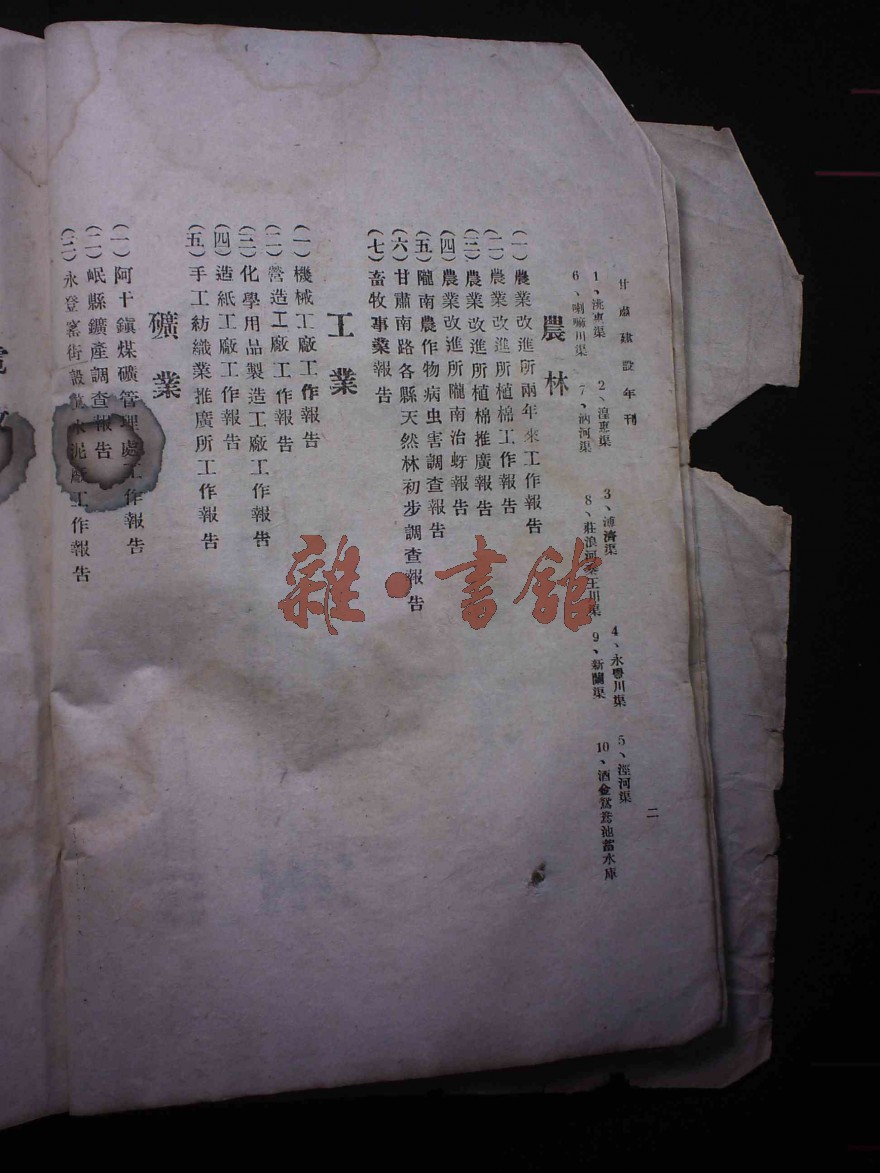 甘肅建設年刊
二
1、洮惠渠 2、湟惠渠 3、溥濟渠 4、永豐川渠 5、涇河渠
6、喇嘛川渠 7、汭河渠 8、莊浪河 王川渠 9、新蘭渠 10、酒金鴛鴦池蓄水庫
農林
(一)農業改進所兩年來工作報告
(二)農業改進所植棉工作報告
(三)農業改進所植棉推廣報告
(四)農業改進所隴南治蚜報告
(五)隴南農作物病虫害調查報告
(六)甘肅南路各縣天然林初步調查報告
(七)畜牧事業報告
工業
(一)機械工廠工作報告
(二)營造工廠工作報告
(三)化學用品製造工廠工作報告
(四)造紙工廠工作報告
(五)手工紡織業推廣所工作報告
礦業
(一)阿干鎭煤礦管理處工作報告
(二)岷縣鑛產調查報告
(三)永登窰街設立水泥廠工作報告
雜·書館